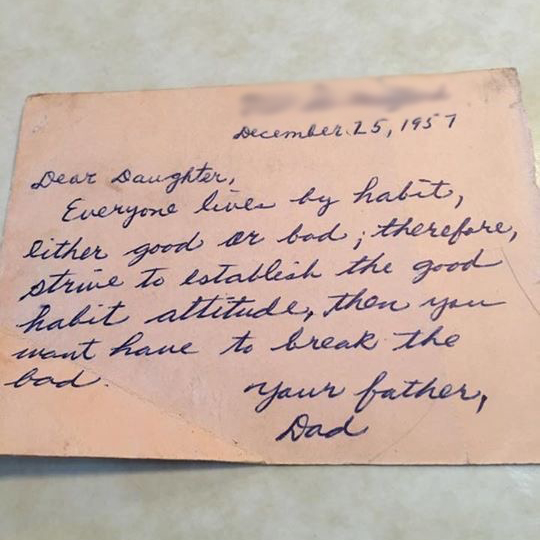 December 25, 1957
Dear Daughter,
Everyone lives by habit,
either good or bad; therefore,
strive to establish the good
habit attitude, then you
want have to break the
bad.
Your father,
Dad